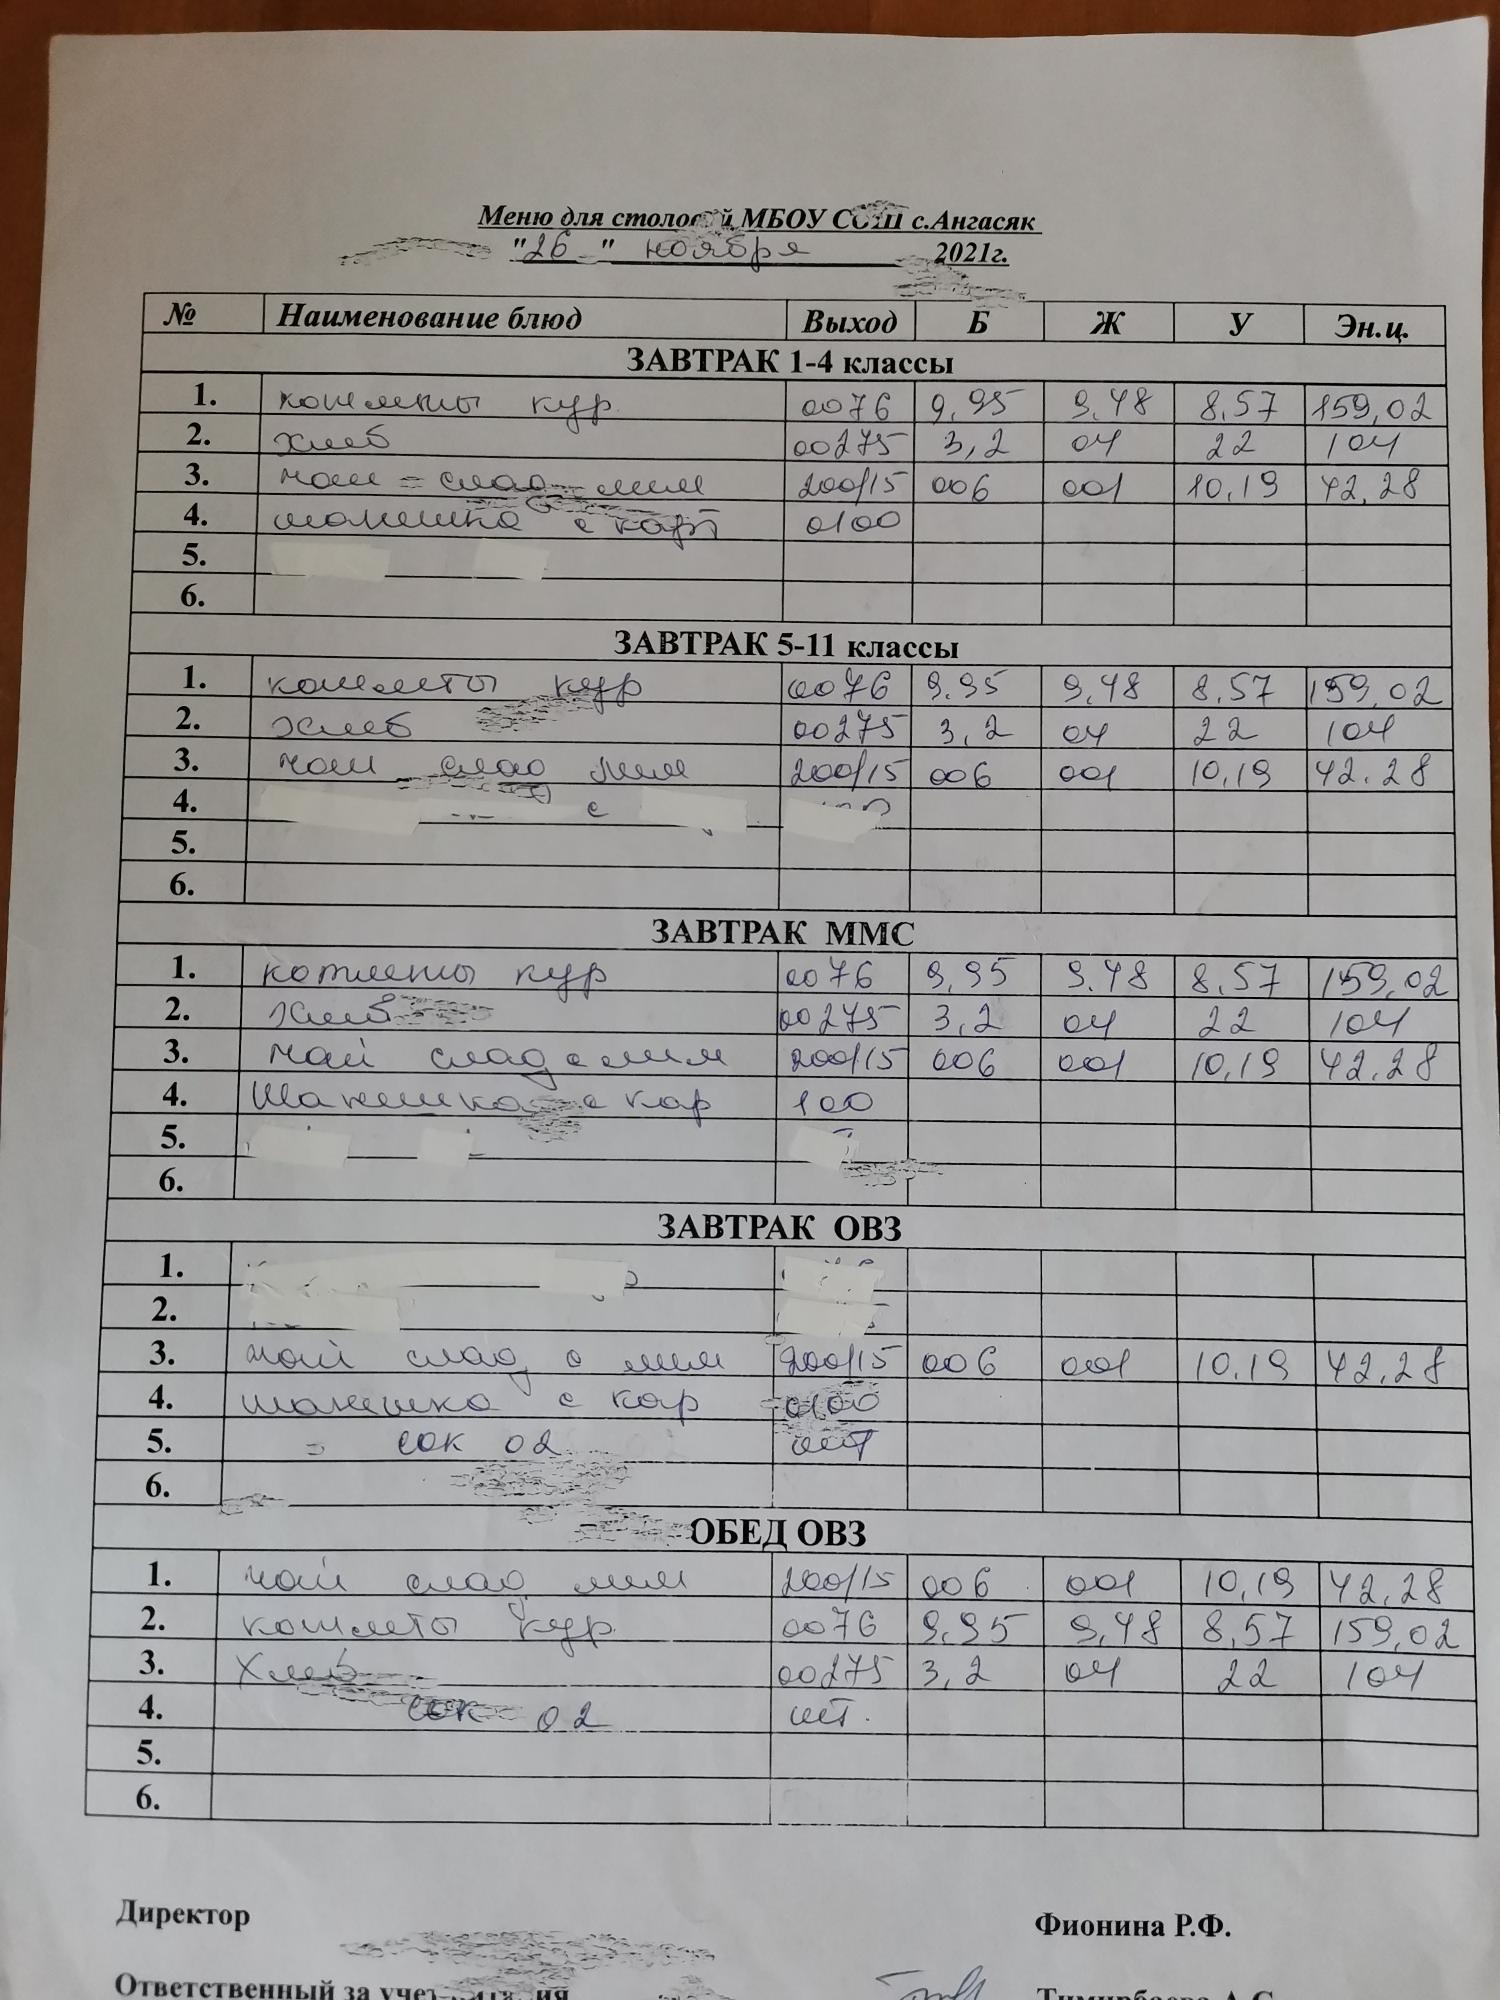 Меню для столовой МБОУ СОШ с.Ангасяк
"26" ноября 2021г.
№ Наименование блюд Выход Б Ж У Эн.ц.
ЗАВТРАК 1-4 классы
1. котлеты кур 0076 9,95 9,48 8,57 159,02
2. хлеб 00275 3,2 04 22 104
3. чай слад лим 200/15 006 001 10,19 42,28
4. шанешка с карт 0100
5.
6.
ЗАВТРАК 5-11 классы
1. котлеты кур 0076 9.95 9,48 8,57 159,02
2. хлеб 00275 3,2 04 22 104
3. чай слад лим 200/15 006 001 10,19 42.28
4. с
5.
6.
ЗАВТРАК ММС
1. котлеты кур 0076 9,95 9.48 8,57 159,02
2. хлеб 00275 3,2 04 22 104
3. чай слад с лим 200/15 006 001 10,19 42.28
4. Шанешка с кар 100
5.
6.
ЗАВТРАК ОВЗ
1.
2.
3. чай слад с лим 200/15 006 001 10,19 42,28
4. шанешка с кар 0100
5. сок 02 шт
6.
ОБЕД ОВЗ
1. чай слад лим 200/15 006 001 10,19 42,28
2. котлеты кур 0076 9.95 9,48 8,57 159,02
3. Хлеб 00275 3,2 04 22 104
4. сок 02 шт.
5.
6.
Директор Фионина Р.Ф.
Ответственный за учет питания